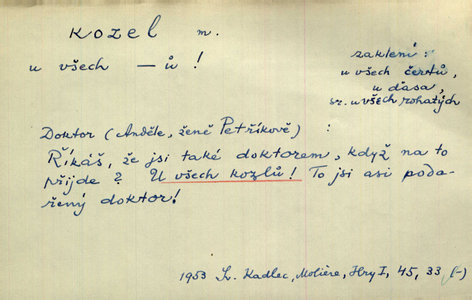 kozel m.
u všech — ů !
zaklení :
u všech čertů,
u ďasa,
sr. u všech rohatých
Doktor (Anděle, ženě Petříkově) :
Říkáš, že jsi také doktorem, když na to
přijde ? U všech kozlů ! To jsi asi poda-
řený doktor!
1953 Sv. Kadlec, Molière, Hry I, 45, 33 (-)